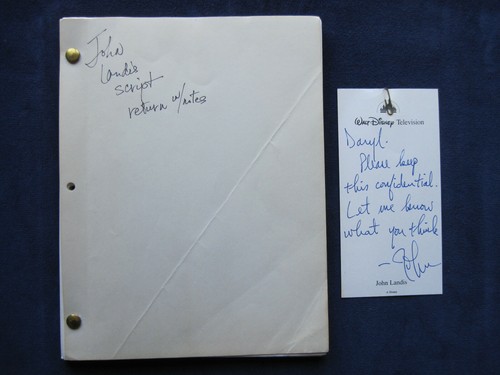 John
Landis
script
return w/notes
WALT DISNEY Television
Daryl.
Please keep
this confidential.
Let me know
what you think
- John
John Landis